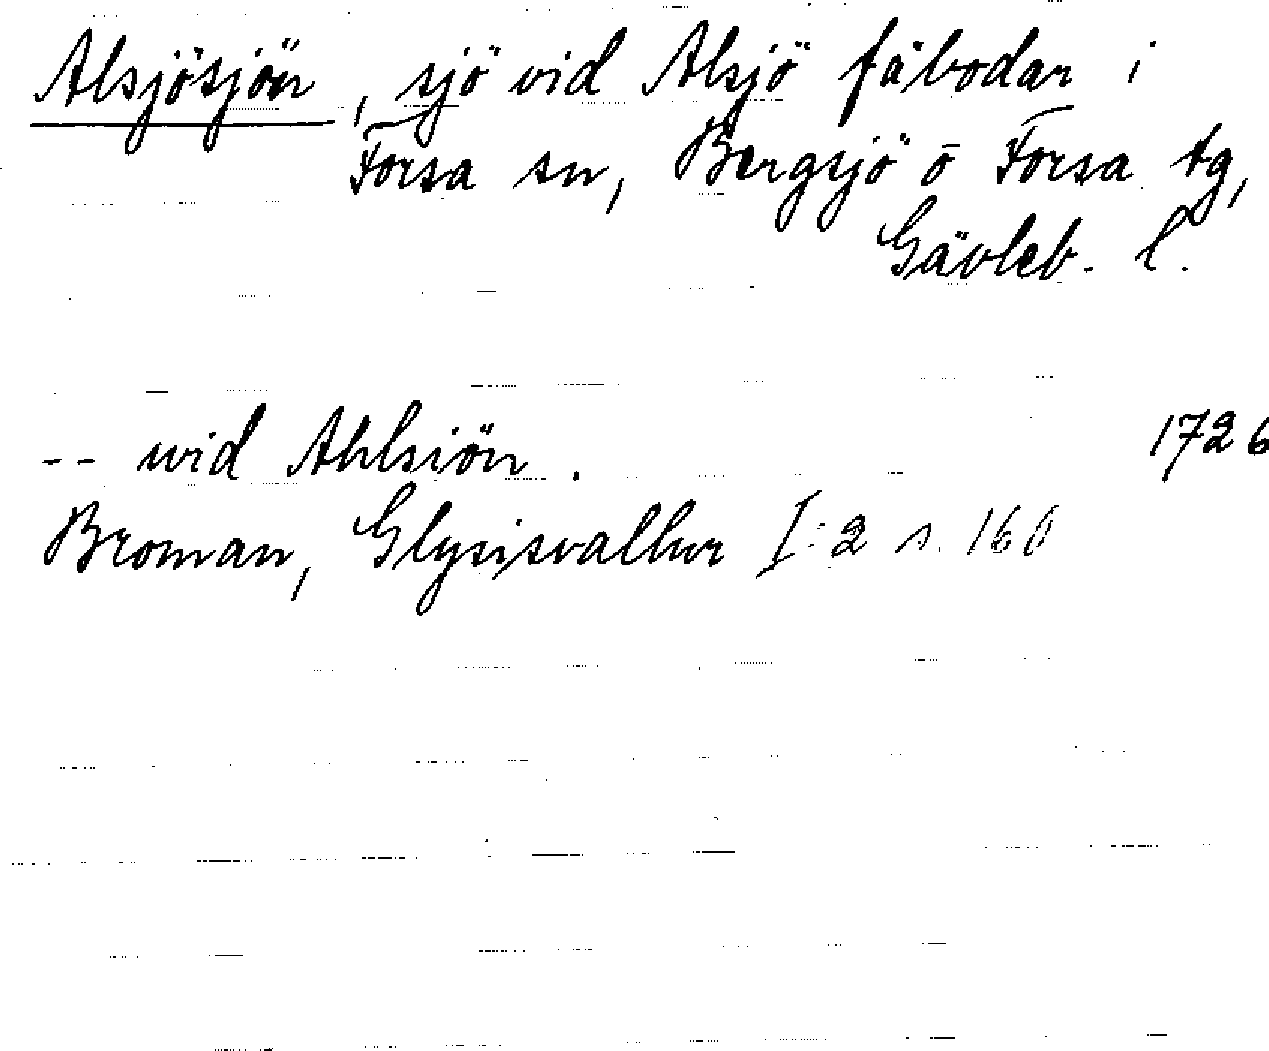 Alsjösjön, sjö vid Alsjö fäbodar i
Forsa sn, Bergsjö o Forsa tg,
Gävleb. l.
-- wid Ahlsiön. 1726
Broman, Glysisvallur I:2 s. 160